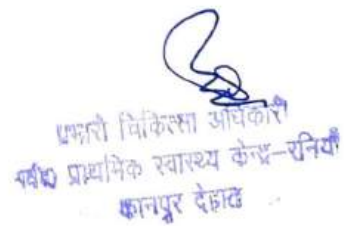 प्रभारी चिकित्सा अधिकारी
प्राथमिक स्वास्थ्य केन्द्र-रनियाँ
कानपुर देहात